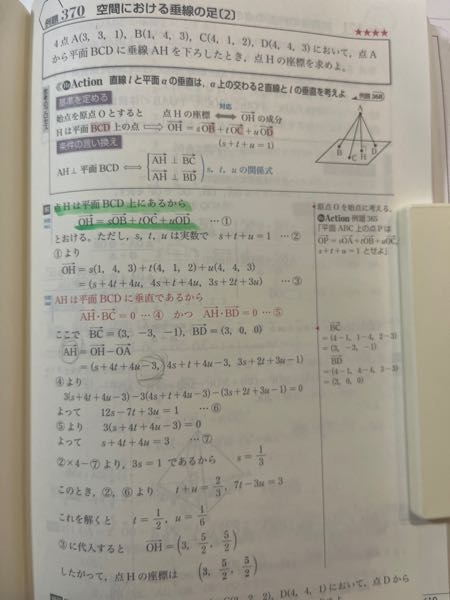 例題 370 空間における垂線の足〔2〕
★★★★
4点A(3, 3, 1), B(1, 4, 3), C(4, 1, 2), D(4, 4, 3)において, 点A
から平面BCDに垂線AHを下ろしたとき, 点Hの座標を求めよ。
Action 直線lと平面αの垂直は, α上の交わる2直線とlの垂直を考えよ 例題368
基準を定める
始点を原点Oとすると 点Hの座標 ⟺ OHの成分
対応
Hは平面BCD上の点 ⟹ OH = sOB + tOC + uOD
(s+t+u=1)
条件の言い換え
AH⊥平面BCD ⟺ AH⊥BC
AH⊥BD
s, t, uの関係式
A
B
C
H
D
点Hは平面BCD上にあるから
OH = sOB + tOC + uOD …①
とおける。ただし, s, t, uは実数で s+t+u=1 …②
①より
OH = s(1, 4, 3)+t(4, 1, 2)+u(4, 4, 3)
=(s+4t+4u, 4s+t+4u, 3s+2t+3u) …③
AHは平面BCDに垂直であるから
AH·BC = 0 …④ かつ AH·BD = 0 …⑤
ここで BC = (3, −3, −1), BD = (3, 0, 0)
AH = OH − OA
=(s+4t+4u−3, 4s+t+4u−3, 3s+2t+3u−1)
④より
3(s+4t+4u−3)−3(4s+t+4u−3)−(3s+2t+3u−1)=0
よって 12s−7t+3u=1 …⑥
⑤より 3(s+4t+4u−3)=0
よって s+4t+4u=3 …⑦
②×4−⑦より, 3s=1 であるから s=1/3
このとき, ②, ⑥より t+u=2/3, 7t−3u=3
これを解くと t=1/2, u=1/6
③に代入すると OH=(3, 5/2, 5/2)
したがって, 点Hの座標は (3, 5/2, 5/2)
原点Oを始点に考える。
Action 例題365
「平面ABC上の点Pは
OP=sOA+tOB+uOC,
s+t+u=1 とせよ」
BC
=(4−1, 1−4, 2−3)
=(3, −3, −1)
BD
=(4−1, 4−4, 3−3)
=(3, 0, 0)
D(4, 4, 1)において, 点Dから